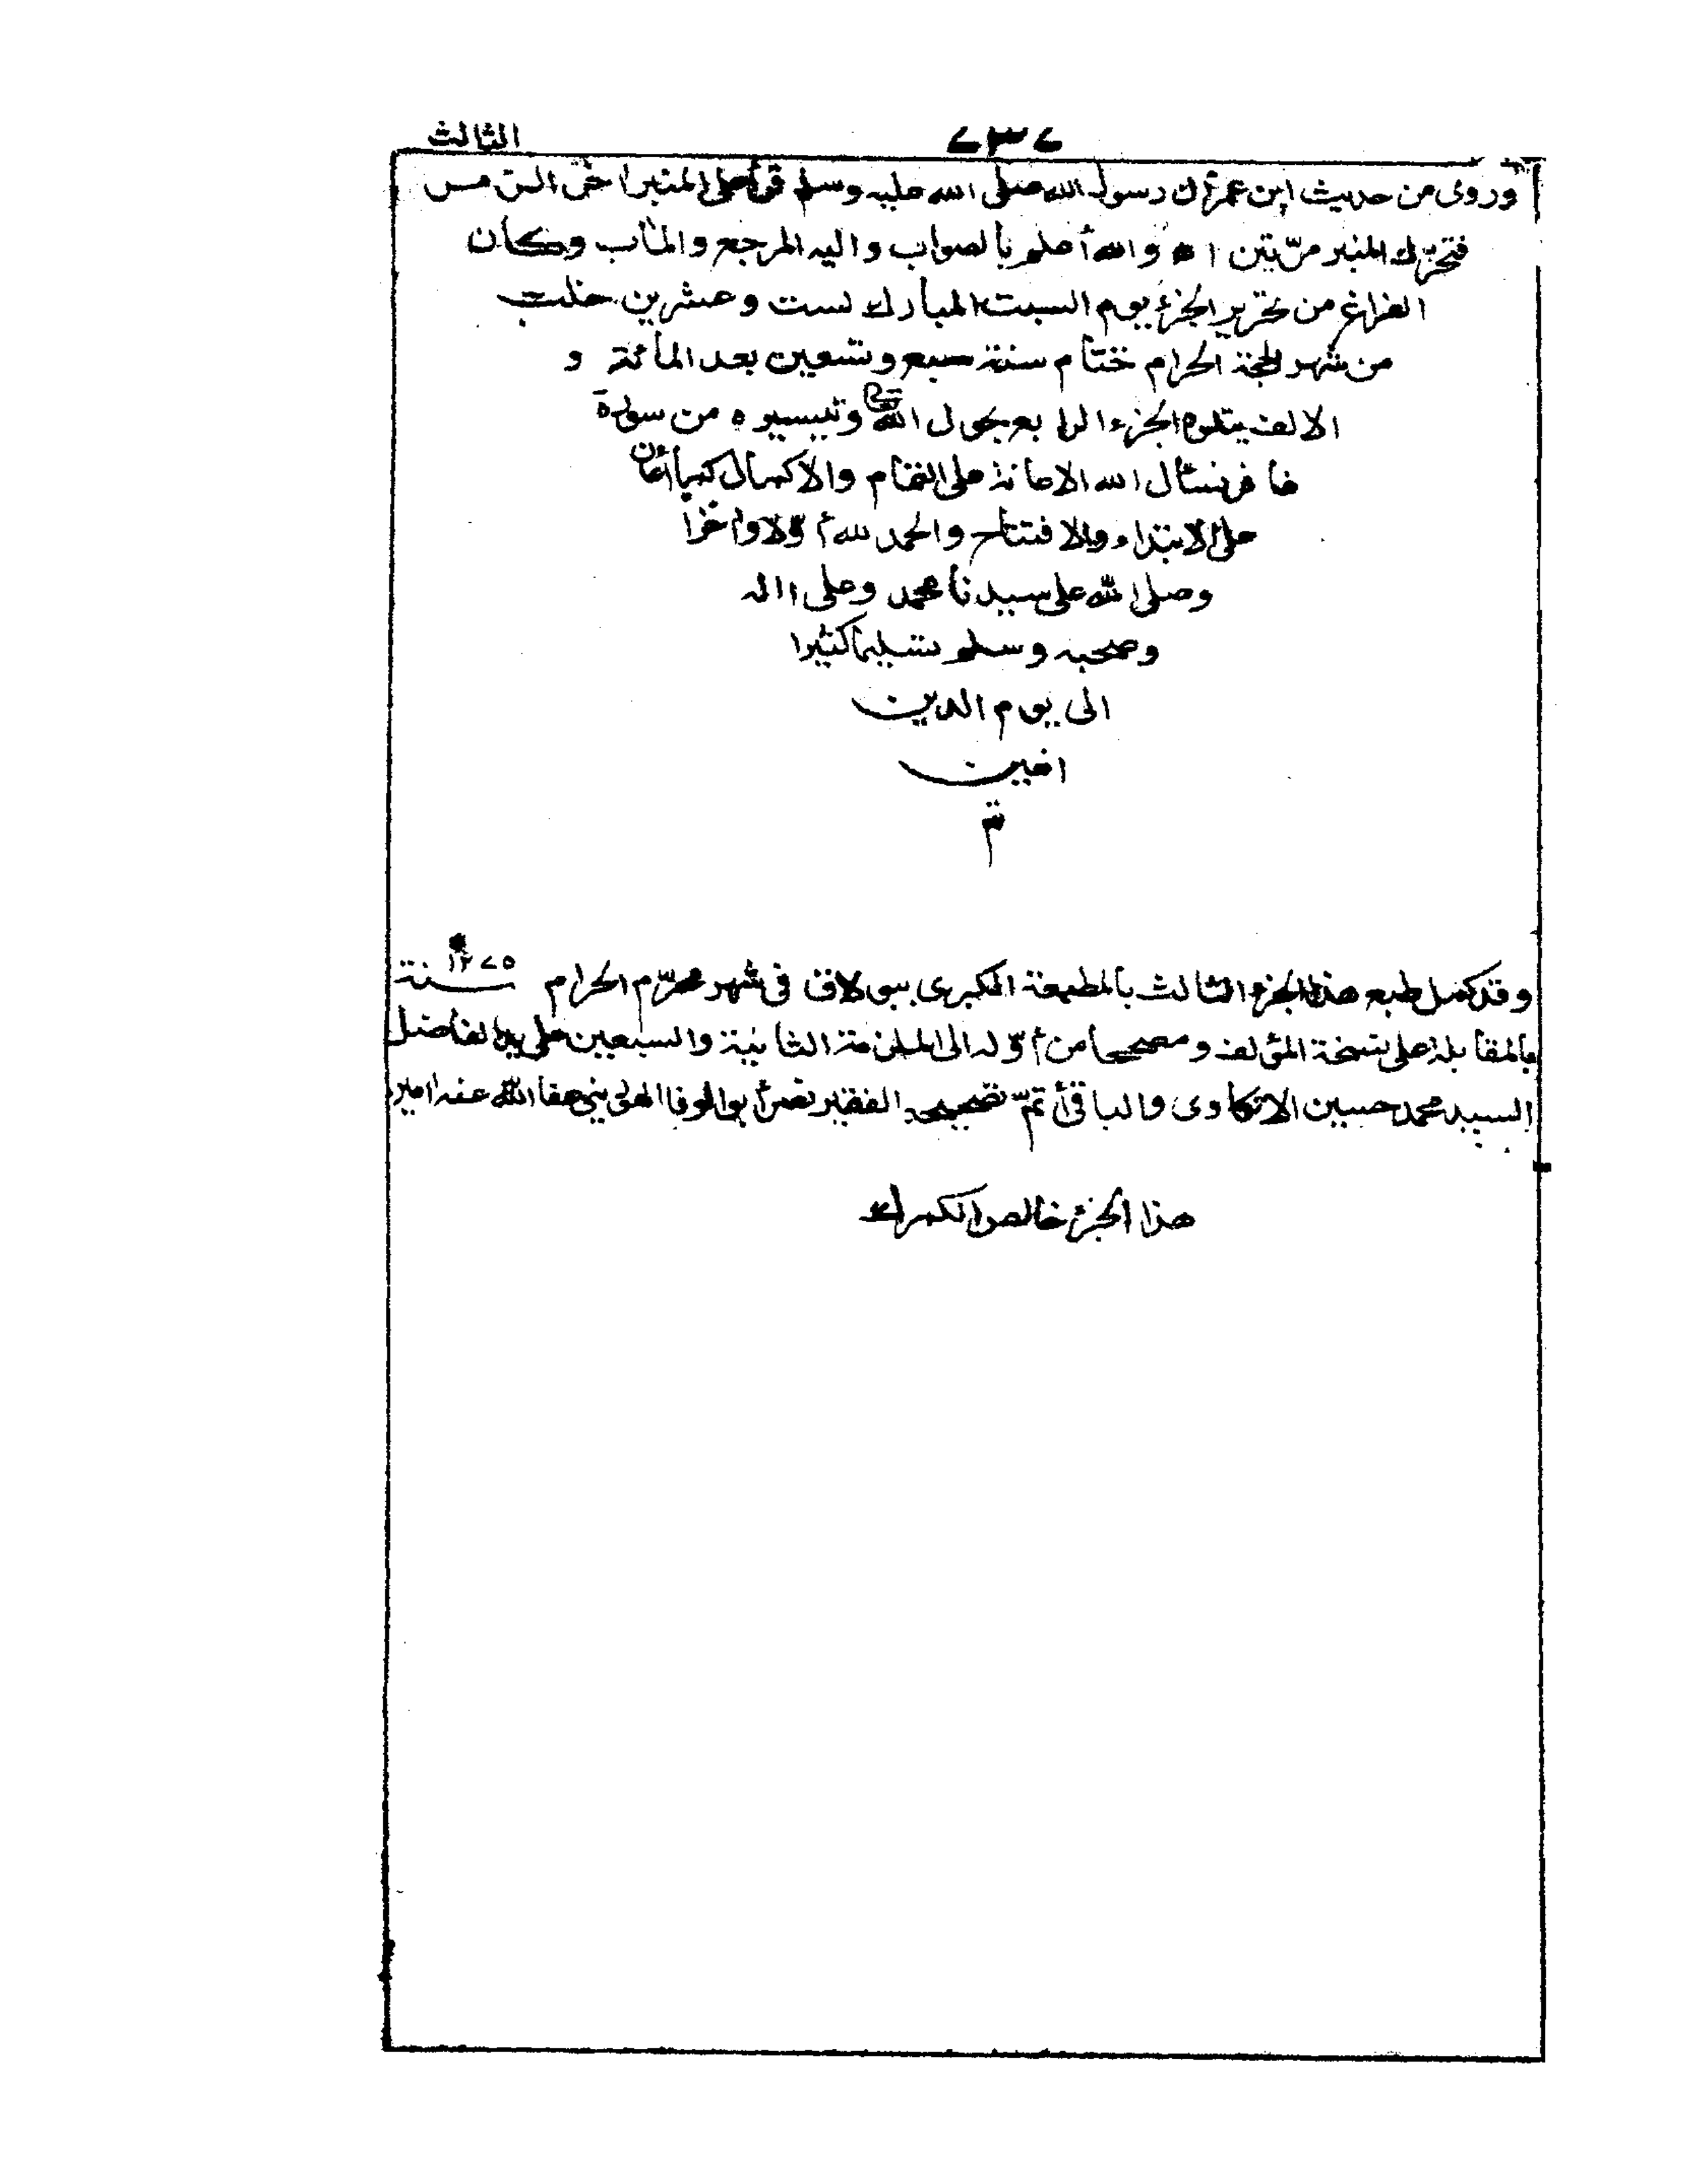 ٧٣٧
الثالث
وروى من حديث ابن عمر أن رسول الله صلى الله عليه وسلم قرأ على المنبر آخر الزمر
فتحرّك المنبر مرّتين اه والله أعلم بالصواب واليه المرجع والمآب وكان
الفراغ من تحرير الجزء يوم السبت المبارك لست وعشرين خلت
من شهر الحجة الحرام ختام سنة سبع وتسعين بعد المائة و
الالف يتلوه الجزء الرابع بحول الله تعالى وتيسيره من سورة
غافر نسأل الله الاعانة على التمام والاكمال كما أعان
على الابتداء والافتتاح والحمد لله أوّلا وآخرا
وصلى الله على سيدنا محمد وعلى اآله
وصحبه وسلم تسليما كثيرا
الى يوم الدين
امين
تم
وقد كمل طبع هذا الجزء الثالث بالمطبعة الكبرى ببولاق فى شهر محرّم الحرام سنة ١٢٧٥
بالمقابلة على نسخة المؤلف ومصححا من أوّله الى الملزمة الثانية والسبعين على يد الفاضل
السيد محمد حسين الاتكاوى والباقى أتمّ تصحيحه الفقير نصر أبو الوفا الهورينى عفا الله عنه امين
هذا الجزء خالص الكمرك